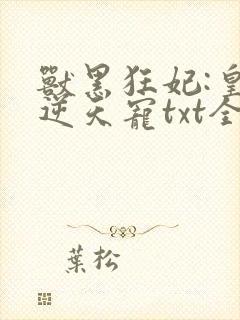 獸黑狂妃:皇
逆天寵txt全
葉松